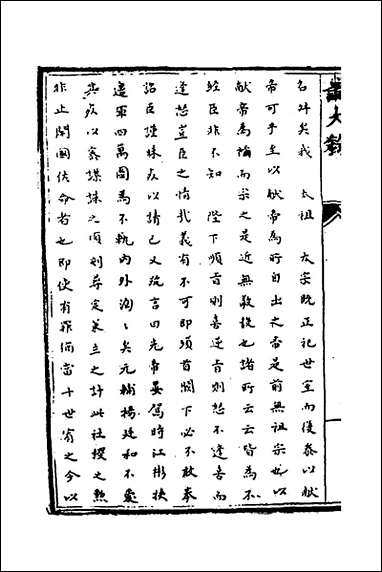 名舛矣我 太祖 太宗既正祀世室而復参以献
帝可乎至以献帝為所自出之帝是前無祖宗也以
献帝為禰而宗之是近無敬毅也諸所云云皆為不
經臣非不知 陛下順旨則喜逆旨則怒不逢喜而
逢怒豈臣之情哉義有不可即頭首闕下必不敢奉
詔臣謹昧死以請已又疏言曰先帝晏駕時江彬挾
邊軍四萬圖為不軌內外洶々矣元輔楊廷和不愛
其死以寒謀誅之頃刻尋定策立之計此社稷之勲
非止開國佐命者也即使有罪猶當十世宥之今以